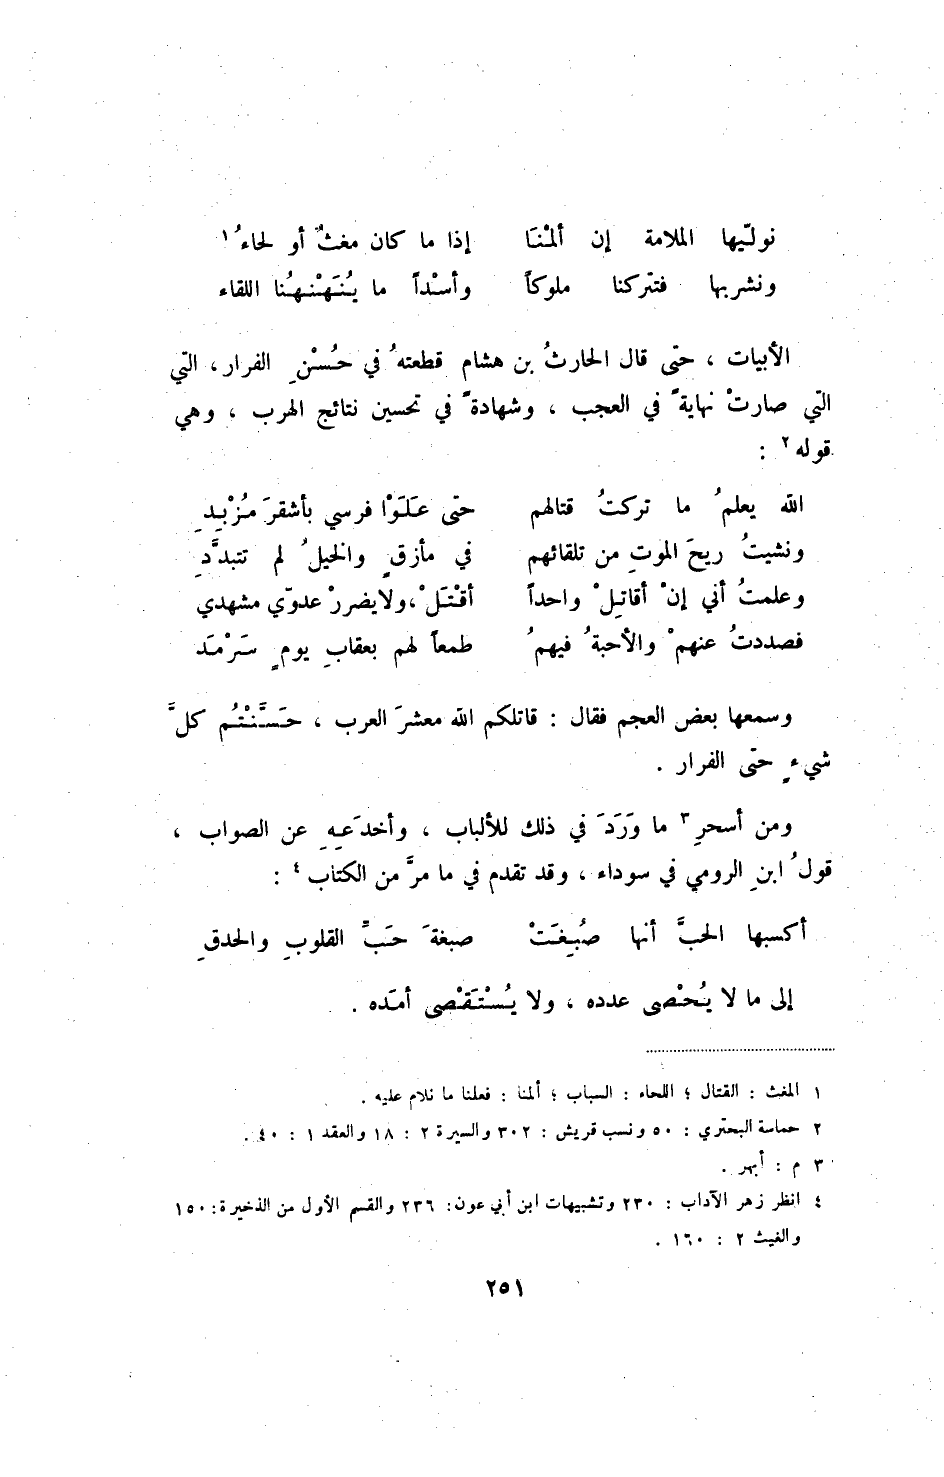 نولّيها الملامة إن ألمْنَا إذا ما كان مغثٌ أو لحاءُ ١
ونشربها فتتركنا ملوكاً وأسْداً ما يُنَهْنهُنا اللقاء
الأبيات ، حتّى قال الحارثُ بن هشام قطعتهُ في حُسْنِ الفرار ، التي
التّي صارتْ نهايةً في العجب ، وشهادةً في تحسين نتائج الهرب ، وهي
قوله ٢ :
الله يعلمُ ما تركتُ قتالهم حتّى عَلَوْا فرسي بأشقرَ مُزْبِدِ
ونشيتُ ريحَ الموتِ من تلقائهم في مأزقٍ والخيلُ لم تتبدَّدِ
وعلمتُ أني إنْ أقاتلْ واحداً أقْتَلْ ، ولا يضررْ عدوّي مشهدي
فصددتُ عنهمْ والأحبةُ فيهمُ طمعاً لهم بعقابِ يومٍ سَرْمَد
وسمعها بعض العجم فقال : قاتلكم الله معشرَ العرب ، حَسَّنْتُم كلَّ
شيءٍ حتّى الفرار .
ومن أسحرِ ٣ ما وَرَدَ في ذلك للألباب ، وأخدَعِهِ عن الصواب ،
قولُ ابنِ الرومي في سوداء ، وقد تقدم في ما مرَّ من الكتاب ٤ :
أكسبها الحبَّ أنها صُبِغَتْ صبغةَ حَبِّ القلوبِ والحدقِ
إلى ما لا يُحْصى عدده ، ولا يُسْتَقْصى أمَده .
١ المغث : القتال ؛ اللحاء : السباب ؛ ألمنا : فعلنا ما نلام عليه .
٢ حماسة البحتري : ٥٠ ونسب قريش : ٣٠٢ والسيرة ٢ : ١٨ والعقد ١ : ٤٠ .
٣ م : أبهر .
٤ انظر زهر الآداب : ٢٣٠ وتشبيهات ابن أبي عون : ٢٣٦ والقسم الأول من الذخيرة : ١٥٠
والغيث ٢ : ١٦٠ .
٢٥١